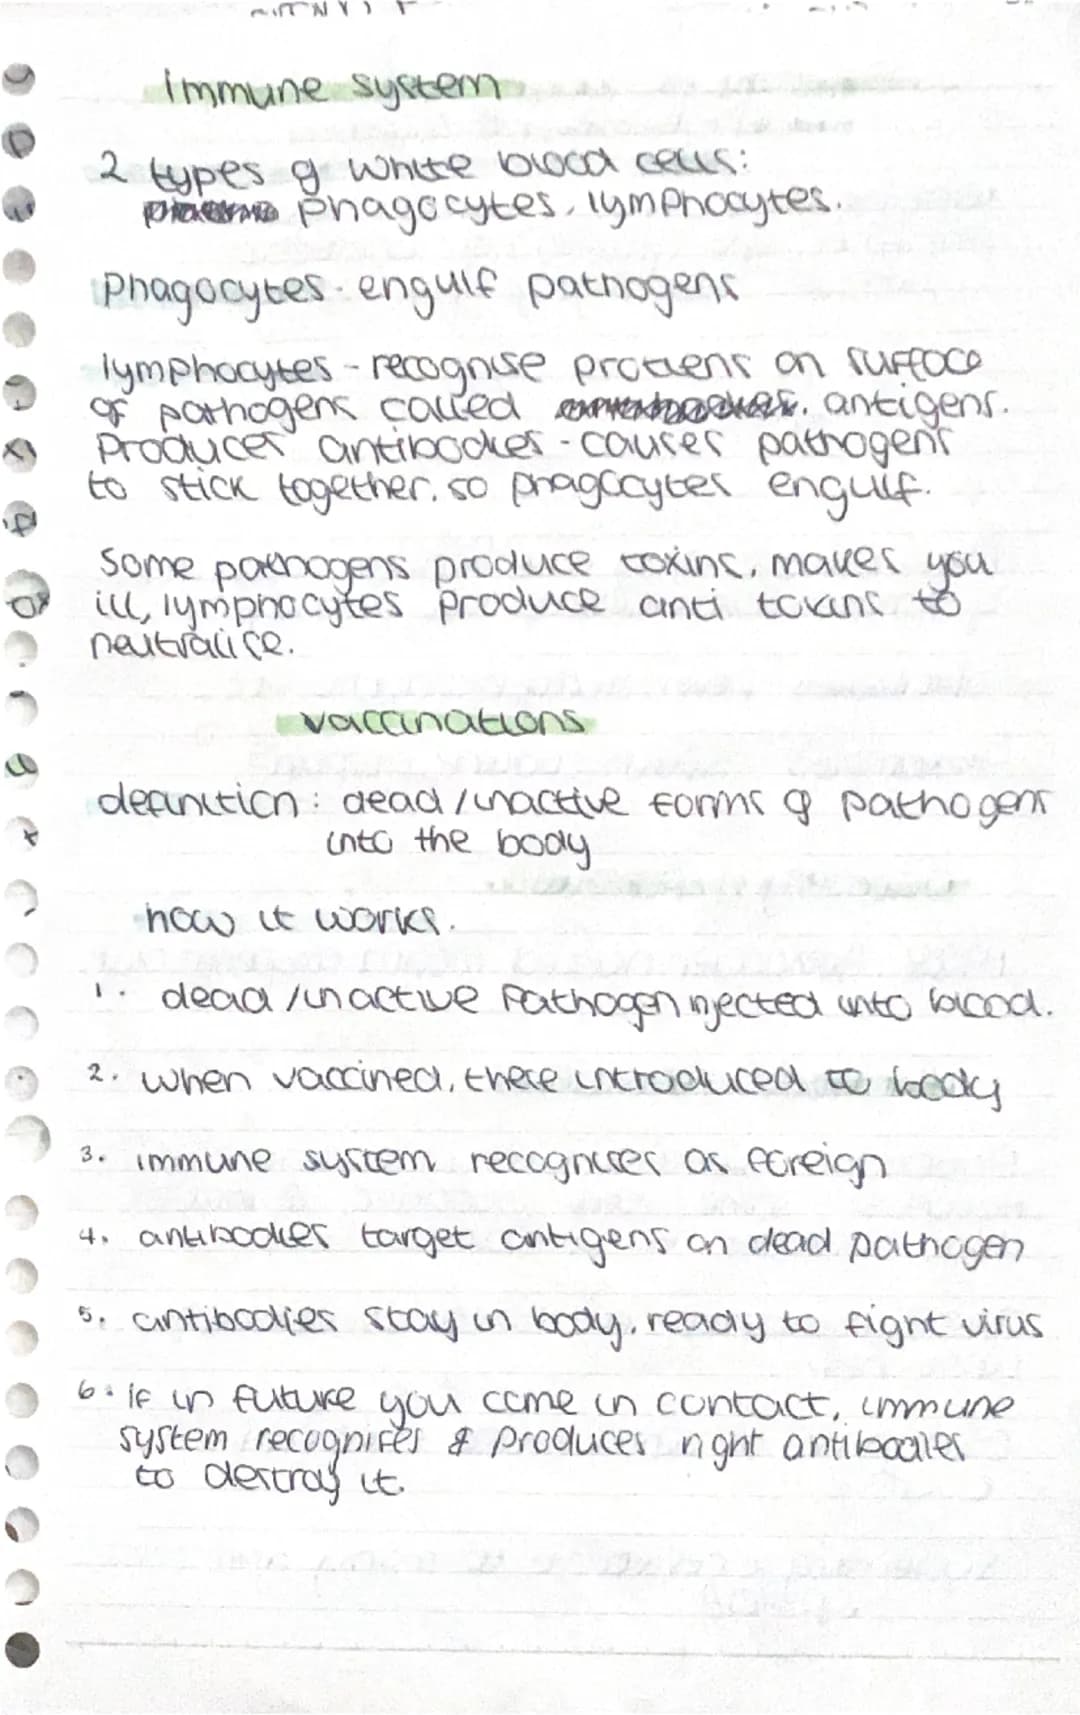 immune system
2 types of white blood cells:
phagocytes, lymphocytes.
Phagocytes - engulf pathogens
lymphocytes - recognise protiens on surface
of pathogens called antigens.
Produces antibodies - causes pathogens
to stick together, so phagocytes engulf.
Some pathogens produce toxins, makes you
ill, lymphocytes produce anti toxins to
neutralise.
vaccinations
definition: dead/inactive forms of pathogens
into the body
how it works.
1. dead/inactive Pathogen injected into blood.
2. when vaccined, these introduced to body
3. immune system recognises as foreign
4. antibodies target antigens on dead pathogen
5. antibodies stay in body, ready to fight virus
6. if in future you come in contact, immune
system recognises & produces right antibodies
to destroy it.